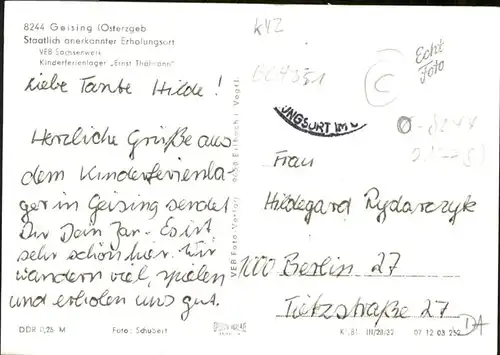 8244 Geising (Osterzgeb
Staatlich anerkannter Erholungsort
VEB Sachsenwerk
Kinderferienlager „Ernst Thälmann"
Liebe Tante Hilde!
Herzliche Grüße aus
dem Kinderferienla-
ger in Geising sendet
Dir Dein Jan. Es ist
sehr schön hier. Wir
wandern viel, spielen
und erholen uns gut.
DDR 0,25 M
Foto: Schubert
VEB Foto-Verlag 9659 Erlbach i. Vogtl.
K42
Echt
Foto
C
UNGSORT IM
Frau
Hildegard Rydarczyk
1000 Berlin 27
Tietzstraße 27
DA
III/28/22
07 12 03 252